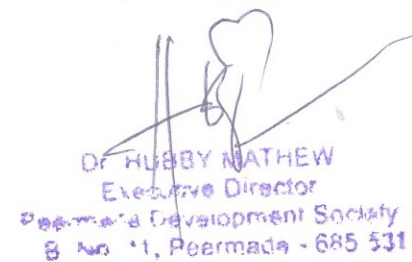 Dr HUBBY MATHEW
Executive Director
Peermade Development Society
B No 11, Peermade - 685 531